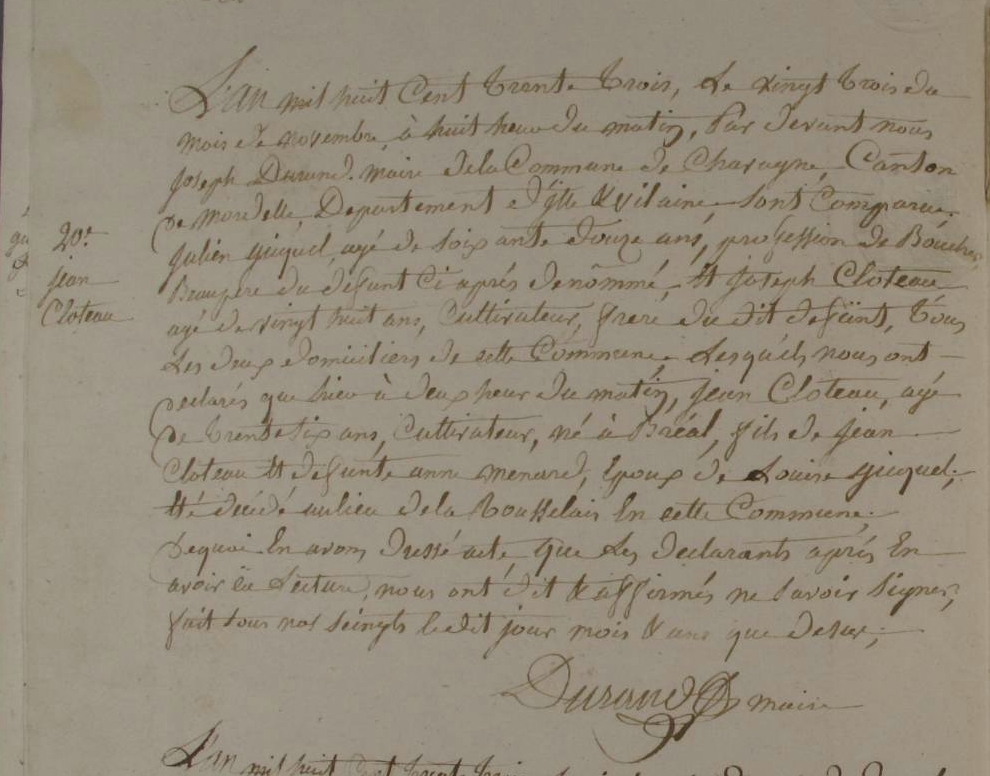 L'an mil huit Cent trente trois, Le vingt trois du
mois de novembre, à huit heur du matin, Par devant nous
Joseph Durand. maire de la Commune de Chavagne, Canton
de Mordelle, Departement d'ylle & vilaine sont Comparue,
20e
julien gicquel, agé de soixante douze ans, profession de Boucher,
jean
Beaupere du defunt Ci aprés denommé, Et joseph Cloteau
Cloteau
agé de vingt huit ans, Cultivateur, frere du dit defunt, tous
Les deux domiciliers de cette Commune, Lesquels nous ont
declarés que hier à deux heur du matin, jean Cloteau, agé
de trente six ans, Cultivateur, né à Bréal, fils de jean
Cloteau Et defunte anne menard, Epoux de Louise gicquel;
Eté décédé au lieu de la En cette Commune.
de quoi En avons dressé acte, que Les declarants aprés En
avoir eü Lecture, nous ont dit & affirmés ne savoir signer,
fait sous nos seingts le dit jour mois & ans que desus;
Durand maire
L'an mil huit Cent trente trois